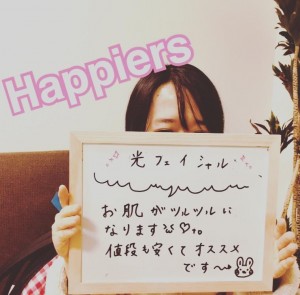 Happiers
光フェイシャル
お肌がツルツルに
なります♡
値段も安くてオススメ
です〜